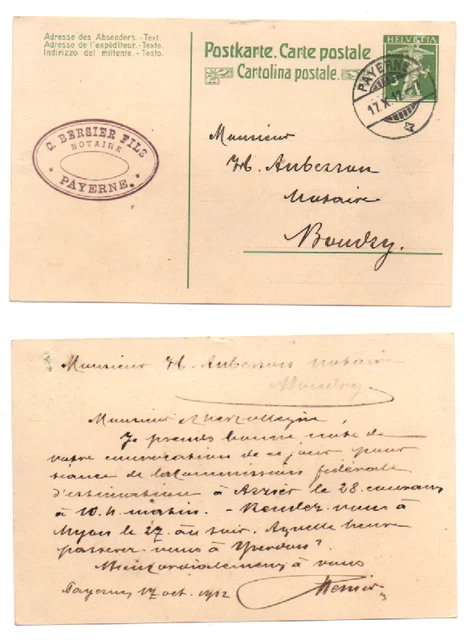 Adresse des Absenders.-Text.
Adresse de l'expéditeur.-Texte.
Indirizzo del mittente.-Testo.
Postkarte. Carte postale
Cartolina postale.
HELVETIA
PAYERNE
17.X.12
C. BERSIER FILS
NOTAIRE
PAYERNE.
Monsieur
H. Auberson
Notaire
Boudry.
Monsieur H. Auberson notaire
Boudry
Monsieur & cher collègue,
Je prends bonne note de
votre convocation de ce jour pour
séance de la Commission fédérale
d'estimation à Arzier le 28 courant
à 10 h matin. - Rendez-vous à
Nyon le 27 au soir. A quelle heure
passerez-vous à Yverdon?
Bien cordialement à vous
Payerne 17 oct. 1912
Bersier